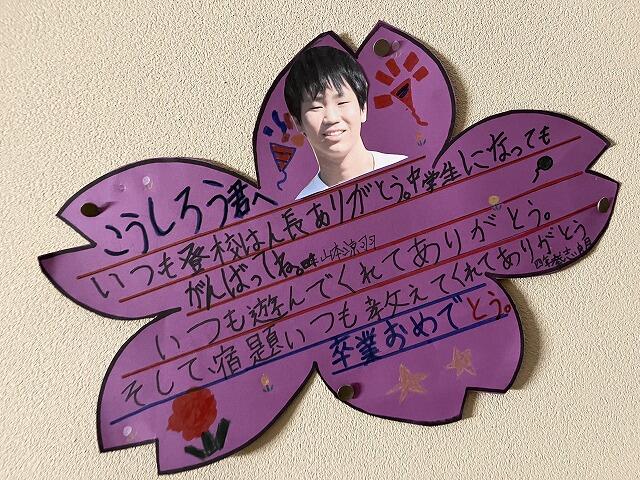 こうしろう君へ
いつも登校はん長ありがとう。中学生になっても
がんばってね。四年 山本涼羽
いつも遊んでくれてありがとう。
そして、宿題いつも教えてくれてありがとう
卒業おめでとう。